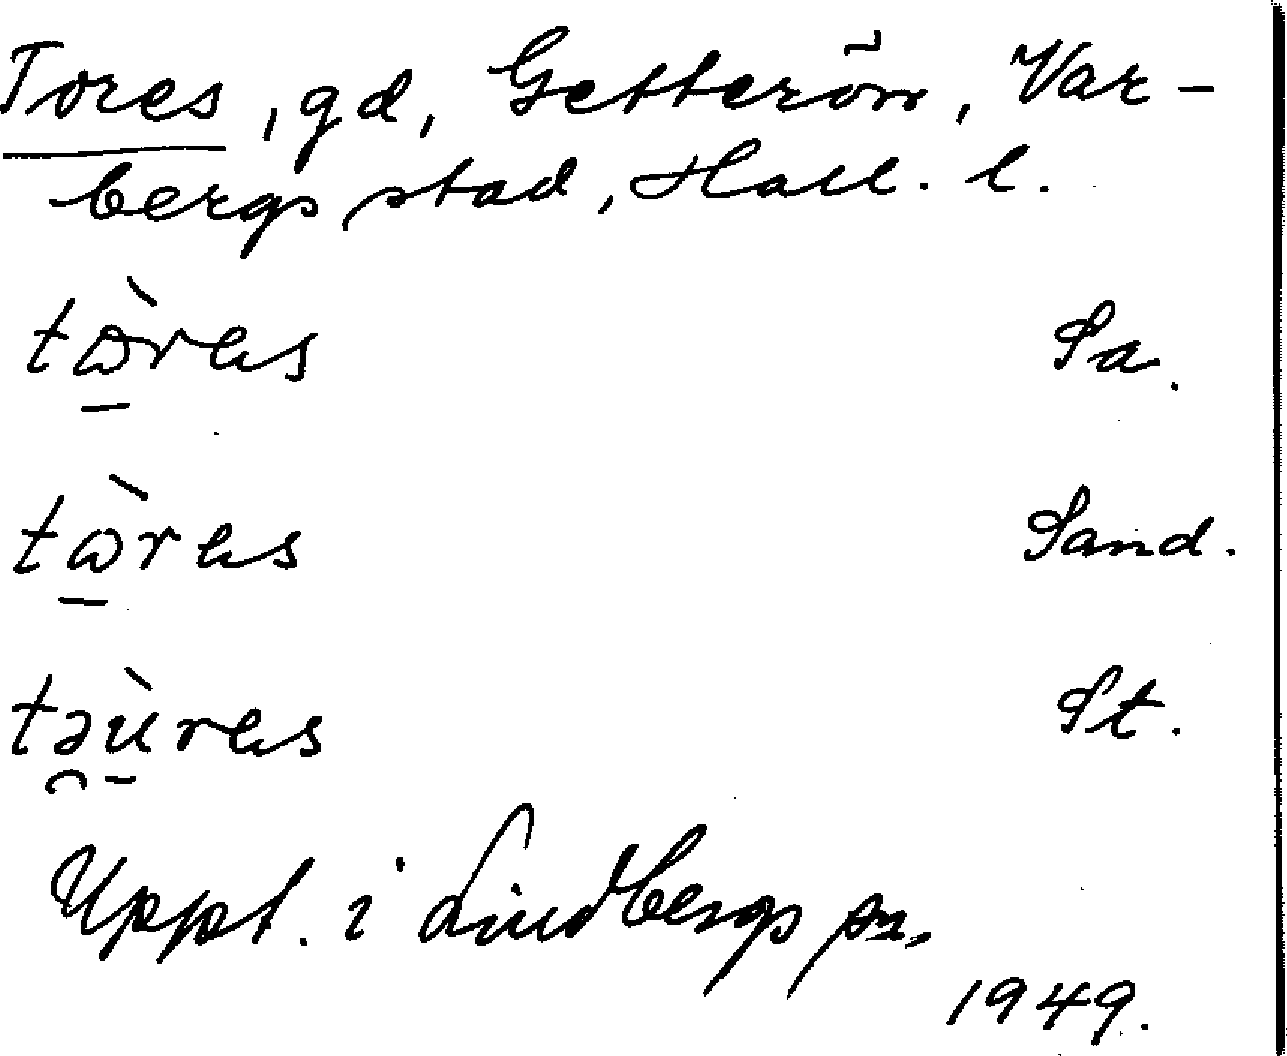 Tores, gd, Getterön, Var-
bergs stad, Hall. l.
tɷ̠̀rɐs Sa.
tɷ̠̀rɐs Sand.
tə̯ṳ̀rɐs St.
Uppt. i Lindbergs sn,
1949.